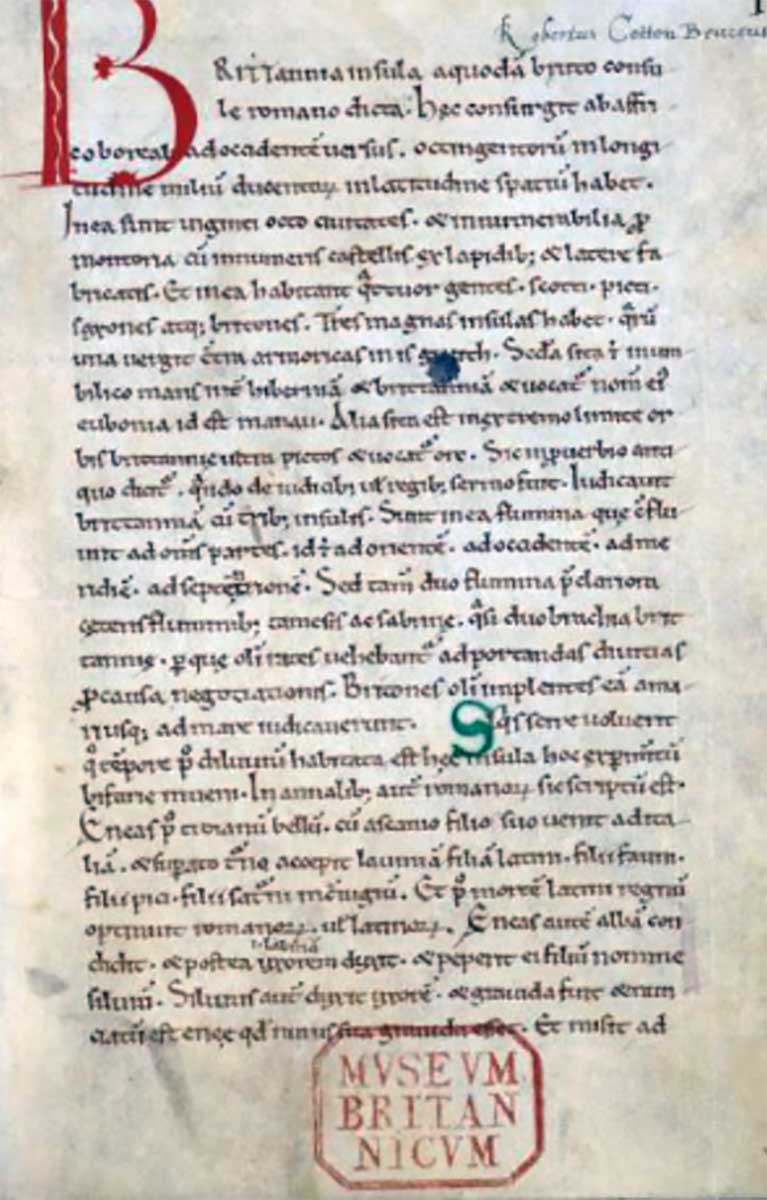 Robertus Cotton Bruceus
BRITTannia insula a quodā bruto consu
le romano dicta. hęc consurgit ab affri
co boreali ad occidentē uersus. octingentorū in longi
tudine miliū ducentorꝝ in latitudine spatiū habet.
In ea sunt uiginti octo ciuitates. & innumerabilia ꝓ
montoria cū innumeris castellis ex lapidib; & latere fa
bricatis. Et in ea habitant q̄tuor gentes. scotti. picti.
saxones atq; britones. Tres magnas insulas habet. q̄rū
una uergit cōtra armoricas
bilico maris int̄ hiberniā & brittanniā & uocat̄ nom̄ ei᾽
eubonia id est manau. Alia sita est in extremo limite or
bis brittannię ultra pictos & uocat̄ orc. Sic in ꝓuerbio anti
quo dicit̄. q̄ndo de iudicib; uł regib; sermo fuit. Iudicauit
brittanniā cū trib; insulis. Sunt in ea flumina que cōflu
unt ad om̄s partes. id ÷ ad orientē. ad occidentē. ad me
ridiē. ad septētrionē. Sed tam̄ duo flumina p̄clariora
cęteris fluminib; tamesis ac sabrinę. q̄si duo brachia brit
tannię. ꝑ que oli rates uehebant̄ ad portandas diuitias
ꝓ causa negotiationis. Britones oli implentes eā a ma
ri usq; ad mare iudicauerunt. Si q̄s scire uoluerit
q̊ tēpore p̄ diluuiū habitata est hęc insula hoc exꝑimtū
bifarie inueni. In annalib; aut̄ romanorꝝ sic scriptū est.
Eneas p̄ troianū bellū. cū ascanio filio suo uenit ad ita
liā. & suꝑato turno accepit lauiniā filiā latini. filii fauni.
filii pici. filii saturni in cōiugiū. Et p̄ mortē latini regnū
optinuit romanorꝝ. uł latinorꝝ. Eneas autē albā con
didit. & postea uxorem duxit. & peperit ei filiū nomine
siluiū. Siluius aut̄ duxit uxorē. & grauida fuit & nun
ciatū est enęę qd̄ nurus sua grauida esset. Et misit ad
MVSEVM
BRITAN
NICVM